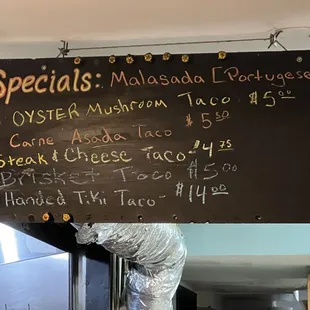 Specials: Malasada [Portugese
OYSTER Mushroom Taco $5.00
Carne Asada Taco $5.50
Steak & Cheese Taco- $4.75
Brisket Taco $5.00
Handed Tiki Taco- $14.00